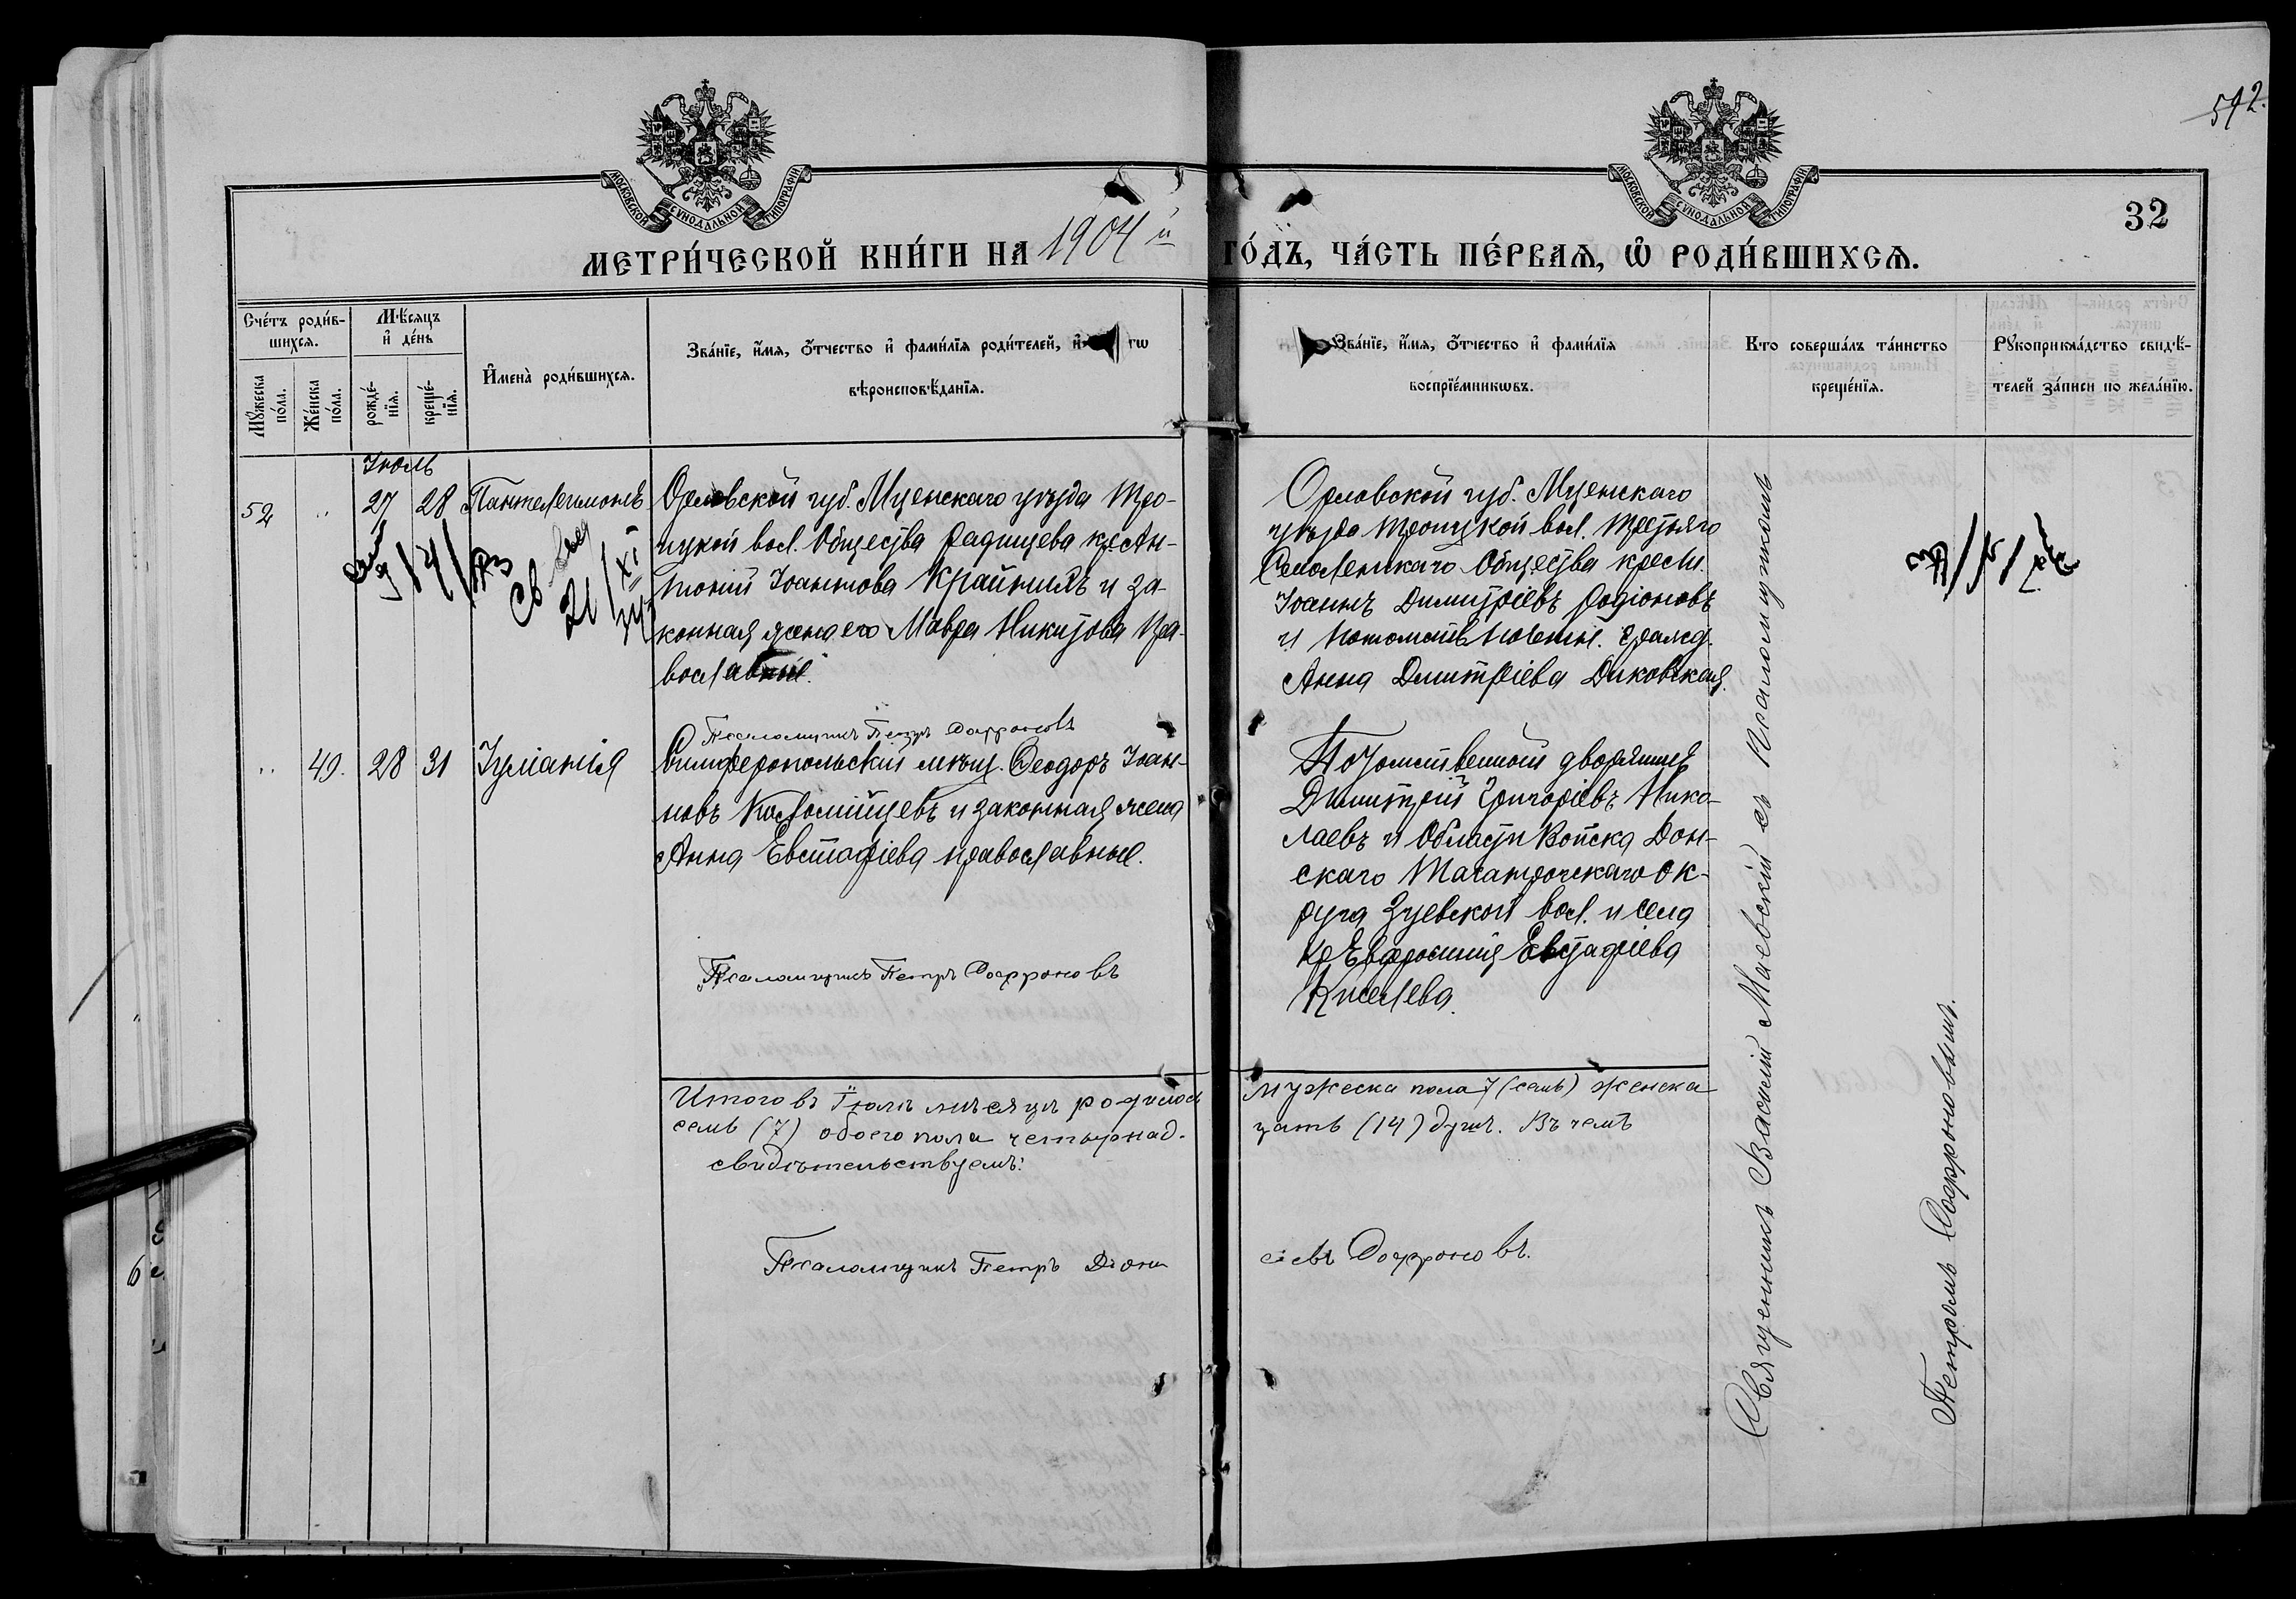 592.
МОСКОВСКОЙ СѴНОДАЛЬНОЙ ТИПОГРАФІИ
МОСКОВСКОЙ СѴНОДАЛЬНОЙ ТИПОГРАФІИ
32
МЕТРИ́ЧЕСКОЙ КНИ́ГИ НА 1904 й ГО́ДЪ, ЧА́СТЬ ПЕ́РВАѦ, Ѡ҆ РОДИ́ВШИХСѦ.
Сче́тъ роди́в-
шихсѧ.
Мꙋ́жеска по́ла.
Же́нска по́ла.
Мѣ́сяцъ
и҆ де́нь
рожде́-
нїѧ.
креще́-
нїѧ.
И҆мена̀ роди́вшихсѧ.
Зва́нїе, и҆́мѧ, ѻ҆́тчество и҆ фами́лїѧ роди́телей, и҆
гѡ
вѣроисповѣ́данїѧ.
Зва́нїе, и҆́мѧ, ѻ҆́тчество и҆ фами́лїѧ
воспрїе́мникѡвъ.
Кто соверша́лъ та́инство
креще́нїѧ.
Рꙋкоприкла́дство свидѣ́-
телей за́писи по жела́нїю.
Іюль
52 .. 27 28 Пантелеимонъ
Орловской губ. Мценскаго уѣзда Тро-
ицкой вол. Общества Радищева кр Ан-
тоній Іоанновъ Крайнихъ и за-
конная жена его Мавра Никитова пра-
вославные.
Орловской губ. Мценскаго
уѣзда Троицкой вол. Третьяго
Общества крестн.
Іоаннъ Димитріевъ Родіоновъ
и потомств. гражд.
Анна Димитріева Диковская.
Св
21/XI
Псаломщикъ Петръ Софроновъ
.. 49. 28 31 Іуліанія
Симферопольскій мѣщ. Ѳеодоръ Іоан-
новъ Коломійцевъ и законная жена
Анна Евстафіева православные.
Потомственной дворянинъ
Димитрій Григоріевъ Нико-
лаевъ и Области Войска Дон-
скаго Таганрогскаго ок-
руга Зуевской вол. и села
кр Евфросинія Евстафіева
Киселева.
Псаломщикъ Петръ Софроновъ
Итого въ Іюлѣ мѣсяцѣ родилось мужеска пола 7 (семь) женска
семь (7) обоего пола четырнад- цать (14) душъ. Въ чемъ
свидѣтельствуемъ:
Псаломщикъ Петръ Діони сіевъ Софроновъ.
Священникъ Василій Маевскій съ Псаломщикомъ
Петромъ Софроновымъ.